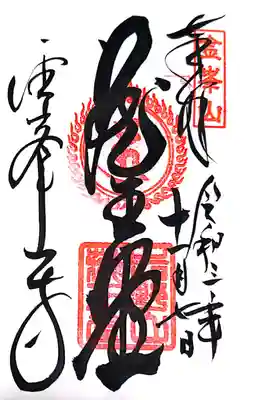 金峯山
奉拝
令和二年
十一月七日
蔵王堂
雲峯寺